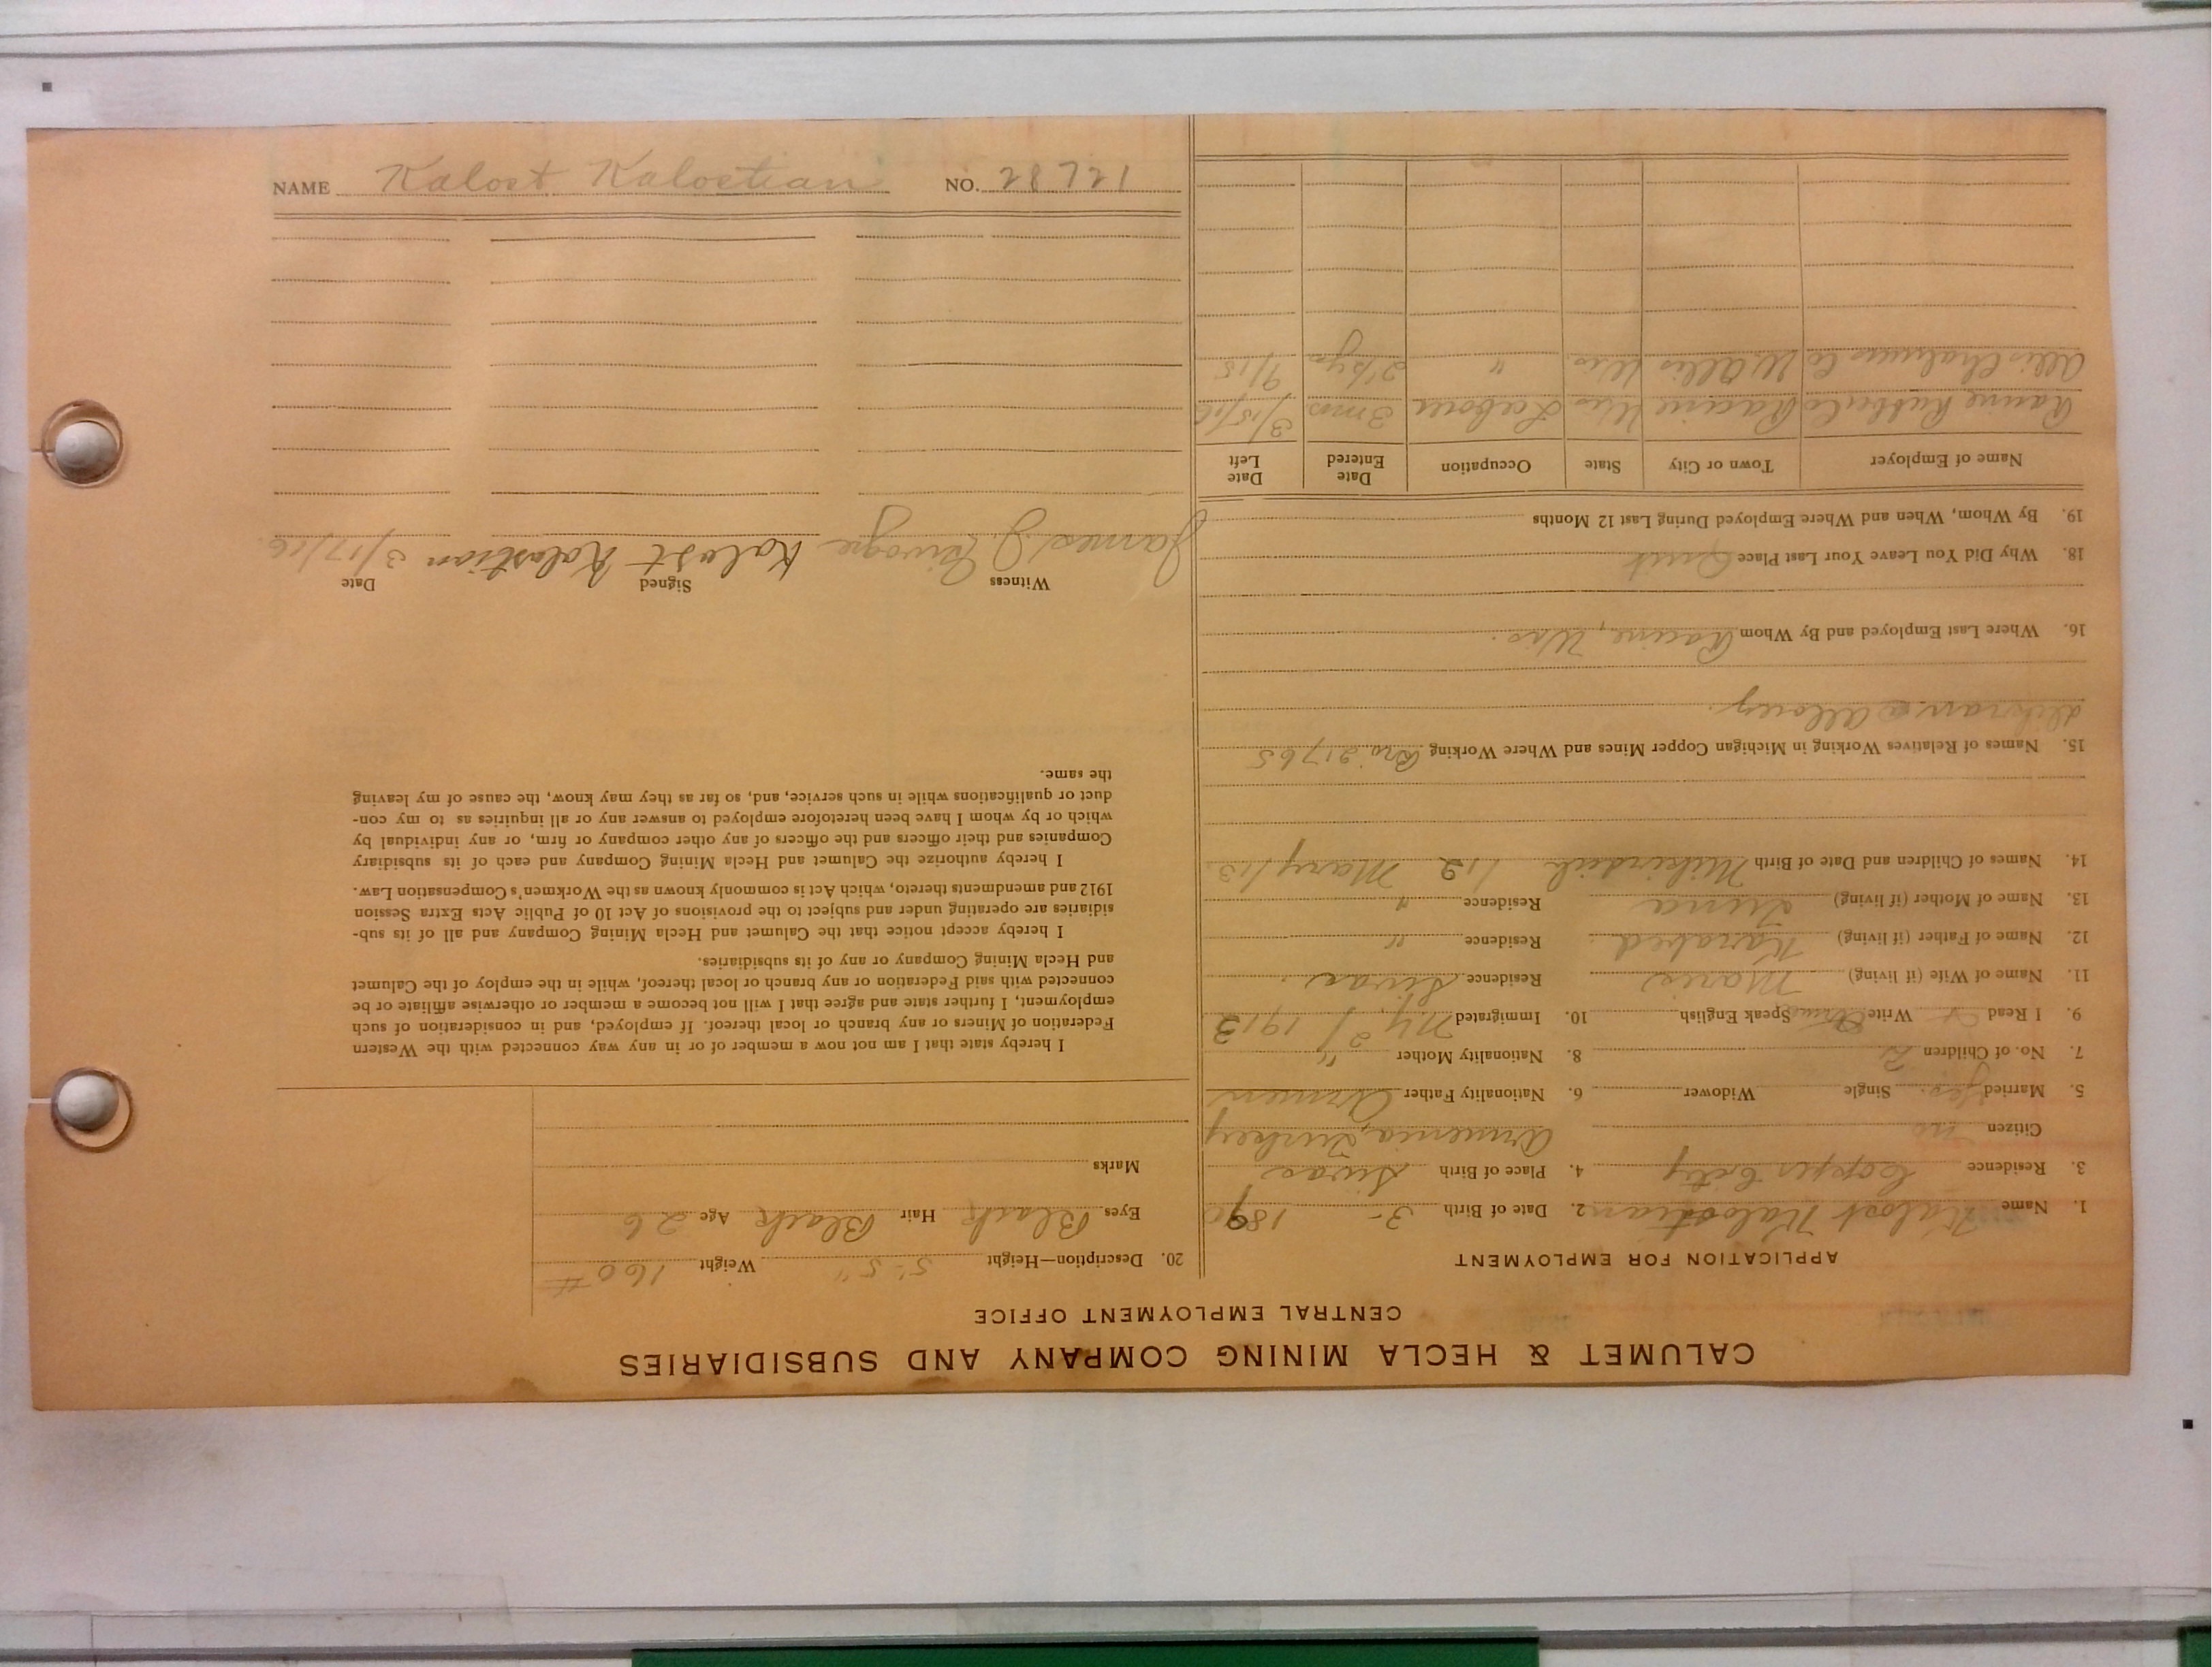 NAME Kalost Kalostian NO. 28721
CALUMET & HECLA MINING COMPANY AND SUBSIDIARIES
CENTRAL EMPLOYMENT OFFICE
APPLICATION FOR EMPLOYMENT
1. Name Kalost Kalostian 2. Date of Birth 3- 1890
3. Residence Copper City 4. Place of Birth Sivas
Citizen no Armenia, Turkey
5. Married yes. Single Widower 6. Nationality Father Armen
7. No. of Children 2 8. Nationality Mother "
9. I Read Write Speak English 10. Immigrated N.Y. 1913
11. Name of Wife (if living) Maris Residence Sivas
12. Name of Father (if living) Karabed Residence "
13. Name of Mother (if living) Residence "
14. Names of Children and Date of Birth 1/12 Mary 1/13
15. Names of Relatives Working in Michigan Copper Mines and Where Working Bro 21765
Dickran @ Allouez.
16. Where Last Employed and By Whom Racine, Wis.
18. Why Did You Leave Your Last Place Quit
19. By Whom, When and Where Employed During Last 12 Months
Name of Employer Town or City State Occupation Date Entered Date Left
Racine Rubber Co Racine Wis Labour 3 mos 3/15/16
Allis Chalmers Co W. Allis Wis. " 2½ yrs 9/15
20. Description—Height 5'-5" Weight 160#
Eyes Black Hair Black Age 26
Marks
I hereby state that I am not now a member of or in any way connected with the Western
Federation of Miners or any branch or local thereof. If employed, and in consideration of such
employment, I further state and agree that I will not become a member or otherwise affiliate or be
connected with said Federation or any branch or local thereof, while in the employ of the Calumet
and Hecla Mining Company or any of its subsidiaries.
I hereby accept notice that the Calumet and Hecla Mining Company and all of its sub-
sidiaries are operating under and subject to the provisions of Act 10 of Public Acts Extra Session
1912 and amendments thereto, which Act is commonly known as the Workmen's Compensation Law.
I hereby authorize the Calumet and Hecla Mining Company and each of its subsidiary
Companies and their officers and the officers of any other company or firm, or any individual by
which or by whom I have been heretofore employed to answer any or all inquiries as to my con-
duct or qualifications while in such service, and, so far as they may know, the cause of my leaving
the same.
Witness Signed Date
James J. Kalost Kalostian 3/17/16.